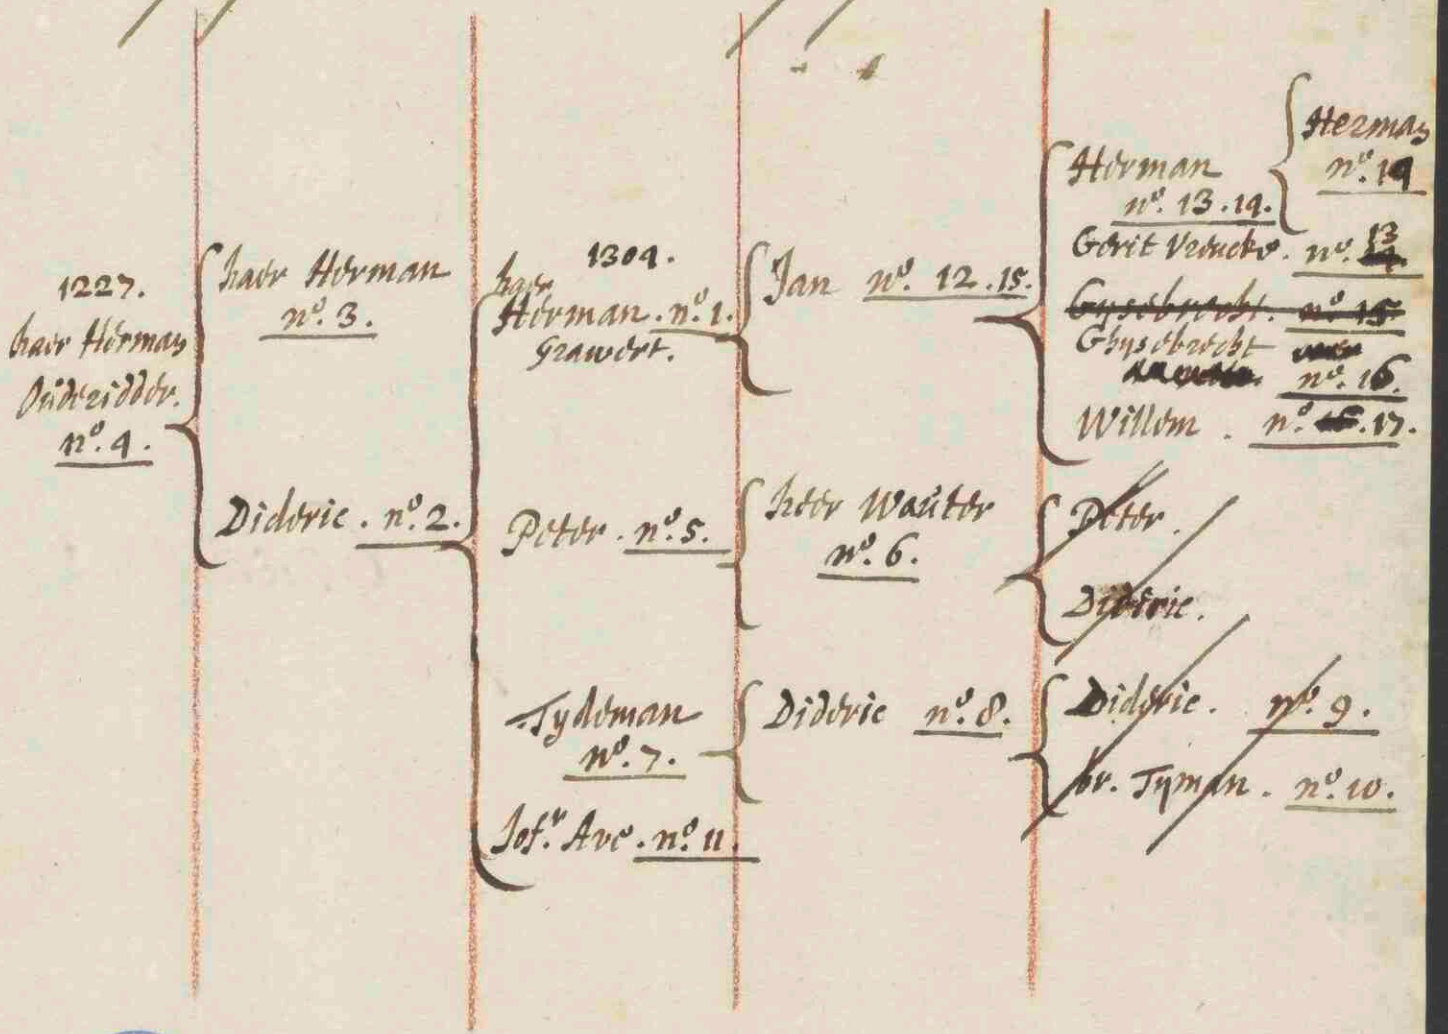 1227.
haer Herman
Ouderidder.
nº. 4.
haer Herman
nº. 3.
Dideric. nº. 2.
1304.
haer
Herman. nº. 1.
Grawert.
Peter. nº. 5.
Tydeman
nº. 7.
Jofr. Ave. nº. 11.
Jan nº. 12. 15.
heer Wauter
nº. 6.
Dideric nº. 8.
Herman
nº. 13. 14.
Herman
nº. 14
Gerit Vrencke. nº. 13
Gysebrecht. nº. 15
Ghysebrecht
nº. 16.
Willem. nº. 17.
Peter.
Dideric.
Dideric. nº. 9.
br. Tyman. nº. 10.